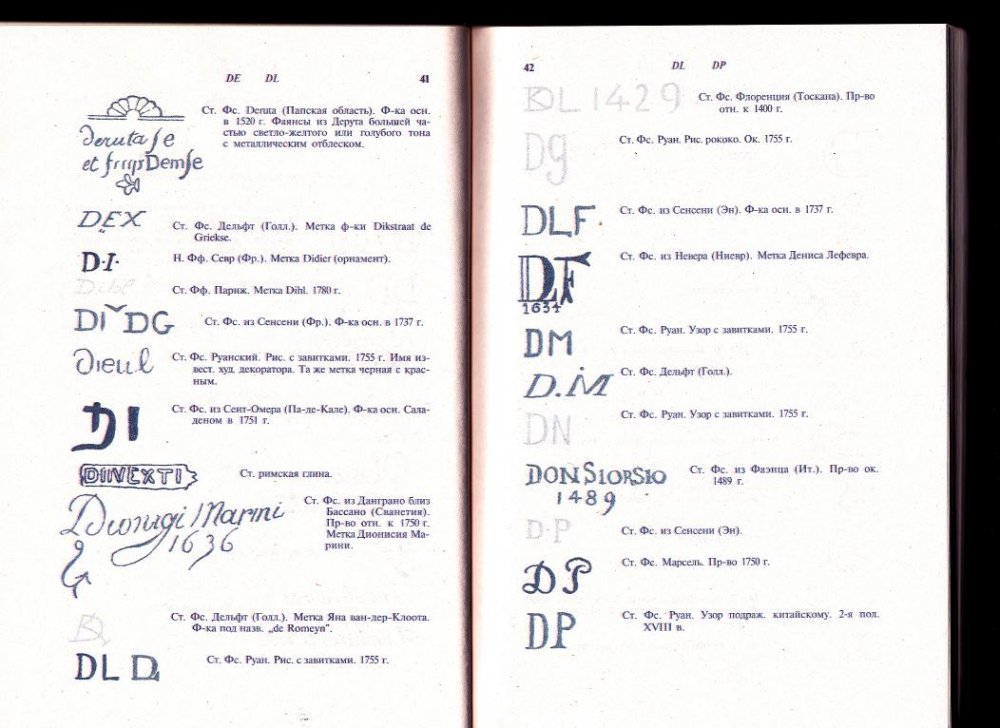 DE DL 41
deruta fe
et
Demfe
Ст. Фс. Deruta (Папская область). Ф-ка осн.
в 1520 г. Фаянсы из Дерута большей ча-
стью светло-желтого или голубого тона
с металлическим отблеском.
DEX
Ст. Фс. Дельфт (Голл.). Метка ф-ки Dikstraat de
Griekse.
D·I·
Н. Фф. Севр (Фр.). Метка Didier (орнамент).
Dihl
Ст. Фф. Париж. Метка Dihl. 1780 г.
DI DG
Ст. Фс. из Сенсени (Фр.). Ф-ка осн. в 1737 г.
Dieul
Ст. Фс. Руанский. Рис. с завитками. 1755 г. Имя из-
вест. худ. декоратора. Та же метка черная с крас-
ным.
DI
Ст. Фс. из Сент-Омера (Па-де-Кале). Ф-ка осн. Сала-
деном в 1751 г.
DINEXTI
Ст. римская глина.
Dionigi Marini
1636
Ст. Фс. из Данграно близ
Бассано (Сванетия).
Пр-во отн. к 1750 г.
Метка Дионисия Ма-
рини.
Ст. Фс. Дельфт (Голл.). Метка Яна ван-дер-Клоота.
Ф-ка под назв. „de Romeyn".
DL D
Ст. Фс. Руан. Рис. с завитками. 1755 г.
42 DL DP
DL 1429
Ст. Фс. Флоренция (Тоскана). Пр-во
отн. к 1400 г.
Dg
Ст. Фс. Руан. Рис. рококо. Ок. 1755 г.
DLF·
Ст. Фс. из Сенсени (Эн). Ф-ка осн. в 1737 г.
DF
1634
Ст. Фс. из Невера (Ниевр). Метка Дениса Лефевра.
DM
Ст. Фс. Руан. Узор с завитками. 1755 г.
D.M
Ст. Фс. Дельфт (Голл.).
DN
Ст. Фс. Руан. Узор с завитками. 1755 г.
DON SIORSIO
1489
Ст. Фс. из Фаэнца (Ит.). Пр-во ок.
1489 г.
D·P
Ст. Фс. из Сенсени (Эн).
DP
Ст. Фс. Марсель. Пр-во 1750 г.
DP
Ст. Фс. Руан. Узор подраж. китайскому. 2-я пол.
XVIII в.